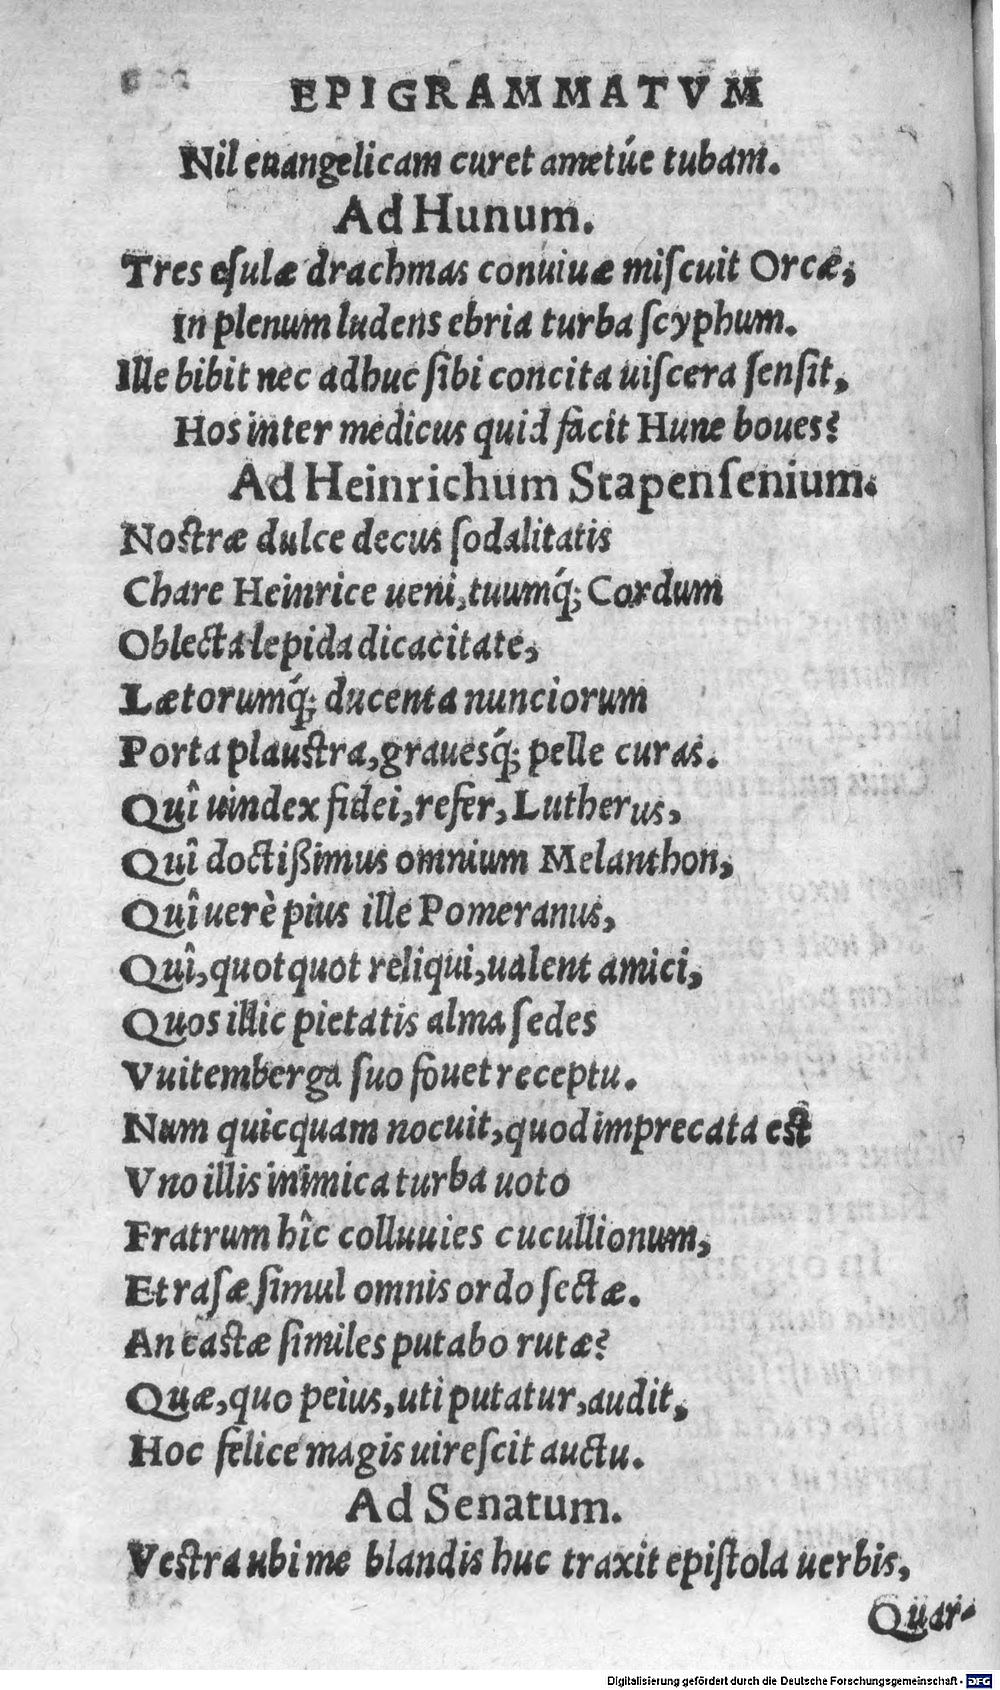 EPIGRAMMATVM
Nil euangelicam curet ametúe tubam.
Ad Hunum.
Tres eſulæ drachmas conuiuæ miſcuit Orcæ,
In plenum ludens ebria turba ſcyphum.
Ille bibit nec adhuc ſibi concita uiſcera ſenſit,
Hos inter medicus quid facit Hune boues?
Ad Heinrichum Stapenſenium.
Noſtræ dulce decus ſodalitatis
Chare Heinrice ueni, tuumq́; Cordum
Oblecta lepida dicacitate,
Lætorumq́; ducenta nunciorum
Porta plauſtra, grauesq́; pelle curas.
Quî uindex fidei, refer, Lutherus,
Quî doctißimus omnium Melanthon,
Quî uerè pius ille Pomeranus,
Quî, quotquot reliqui, ualent amici,
Quos illic pietatis alma ſedes
Vuitemberga suo fouet receptu.
Num quicquam nocuit, quod imprecata eſt
Vno illis inimica turba uoto
Fratrum hîc colluuies cucullionum,
Et raſæ ſimul omnis ordo ſectæ.
An caſtæ ſimiles putabo rutæ?
Quæ, quo peius, uti putatur, audit,
Hoc felice magis uireſcit auctu.
Ad Senatum.
Veſtra ubi me blandis huc traxit epiſtola uerbis,
Quar-
Digitalisierung gefördert durch die Deutsche Forschungsgemeinschaft - DFG